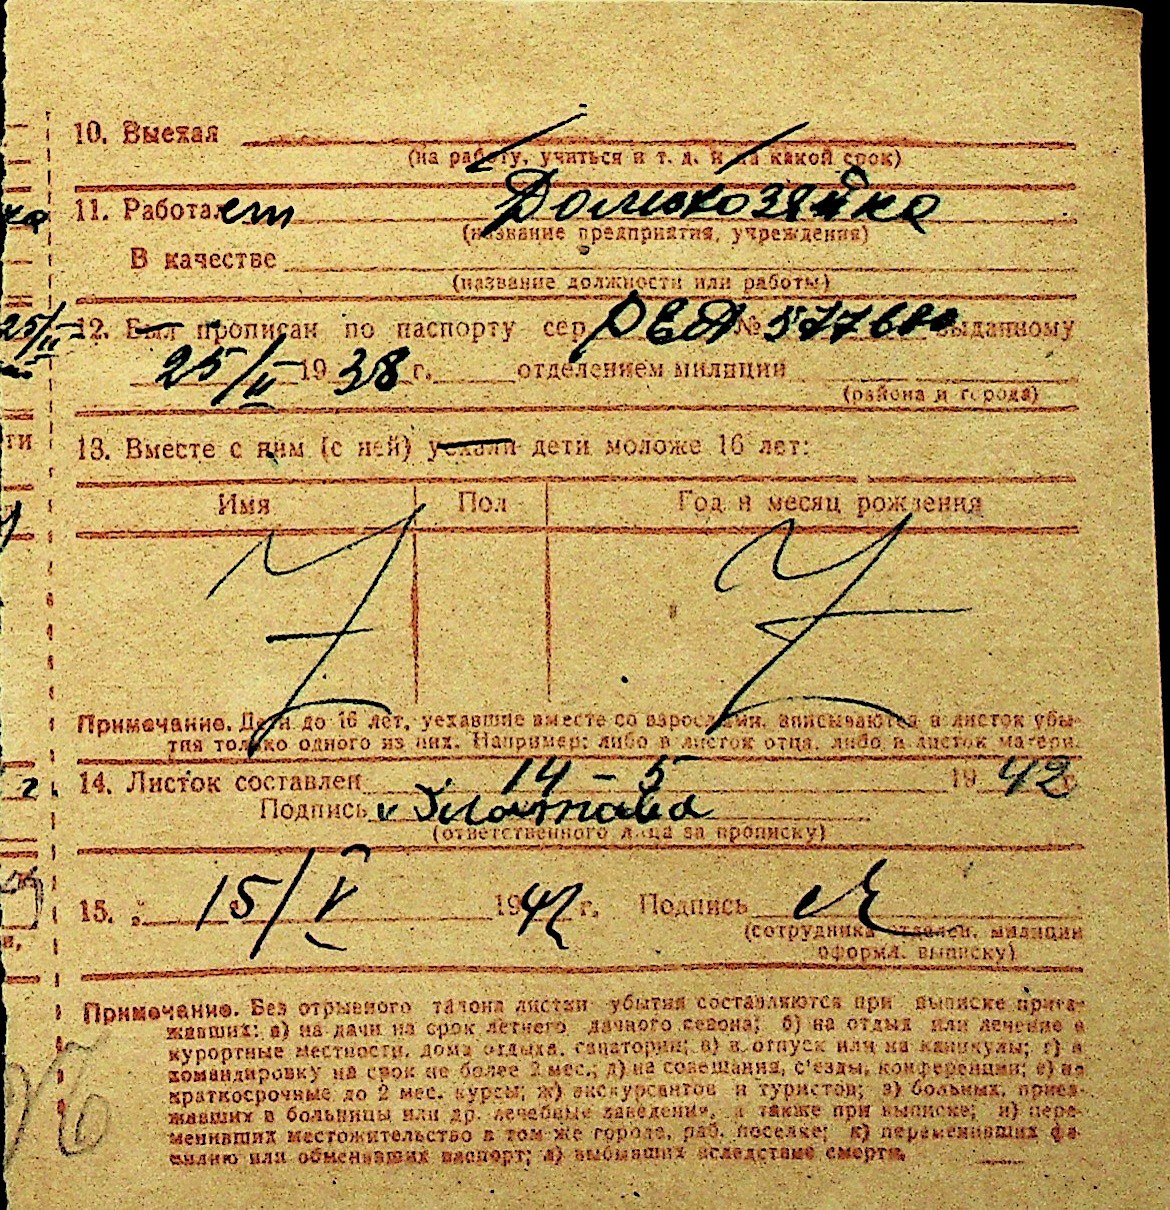 10. Выехал
(на работу, учиться и т. д. и на какой срок)
11. Работает Домохозяйка
(название предприятия, учреждения)
В качестве
(название должности или работы)
12. Был прописан по паспорту сер. № выданному
25/II 1938 г. отделением милиции
(района и города)
13. Вместе с ним (с ней) уехали дети моложе 16 лет:
Имя Пол Год и месяц рождения
Примечание. Дети до 16 лет, уехавшие вместе со взрослыми, вписываются в листок убы-
тия только одного из них. Например: либо в листок отца, либо в листок матери.
14. Листок составлен 14 – 5 1942 г.
Подпись
(ответственного лица за прописку)
15. 15/V 1942 г. Подпись
(сотрудника отделен. милиции
оформл. выписку)
Примечание. Без отрывного талона листки убытия составляются при выписке приез-
жавших: а) на дачи на срок летнего дачного сезона; б) на отдых или лечение в
курортные местности, дома отдыха, санатории; в) в отпуск или на каникулы; г) в
командировку на срок не более 2 мес.; д) на совещания, с'езды, конференции; е) на
краткосрочные до 2 мес. курсы; ж) экскурсантов и туристов; з) больных, приез-
жавших в больницы или др. лечебные заведения, а также при выписке; и) пере-
менивших местожительство в том же городе, раб. поселке; к) переменивших фа-
милию или обменивших паспорт; л) выбывших вследствие смерти.